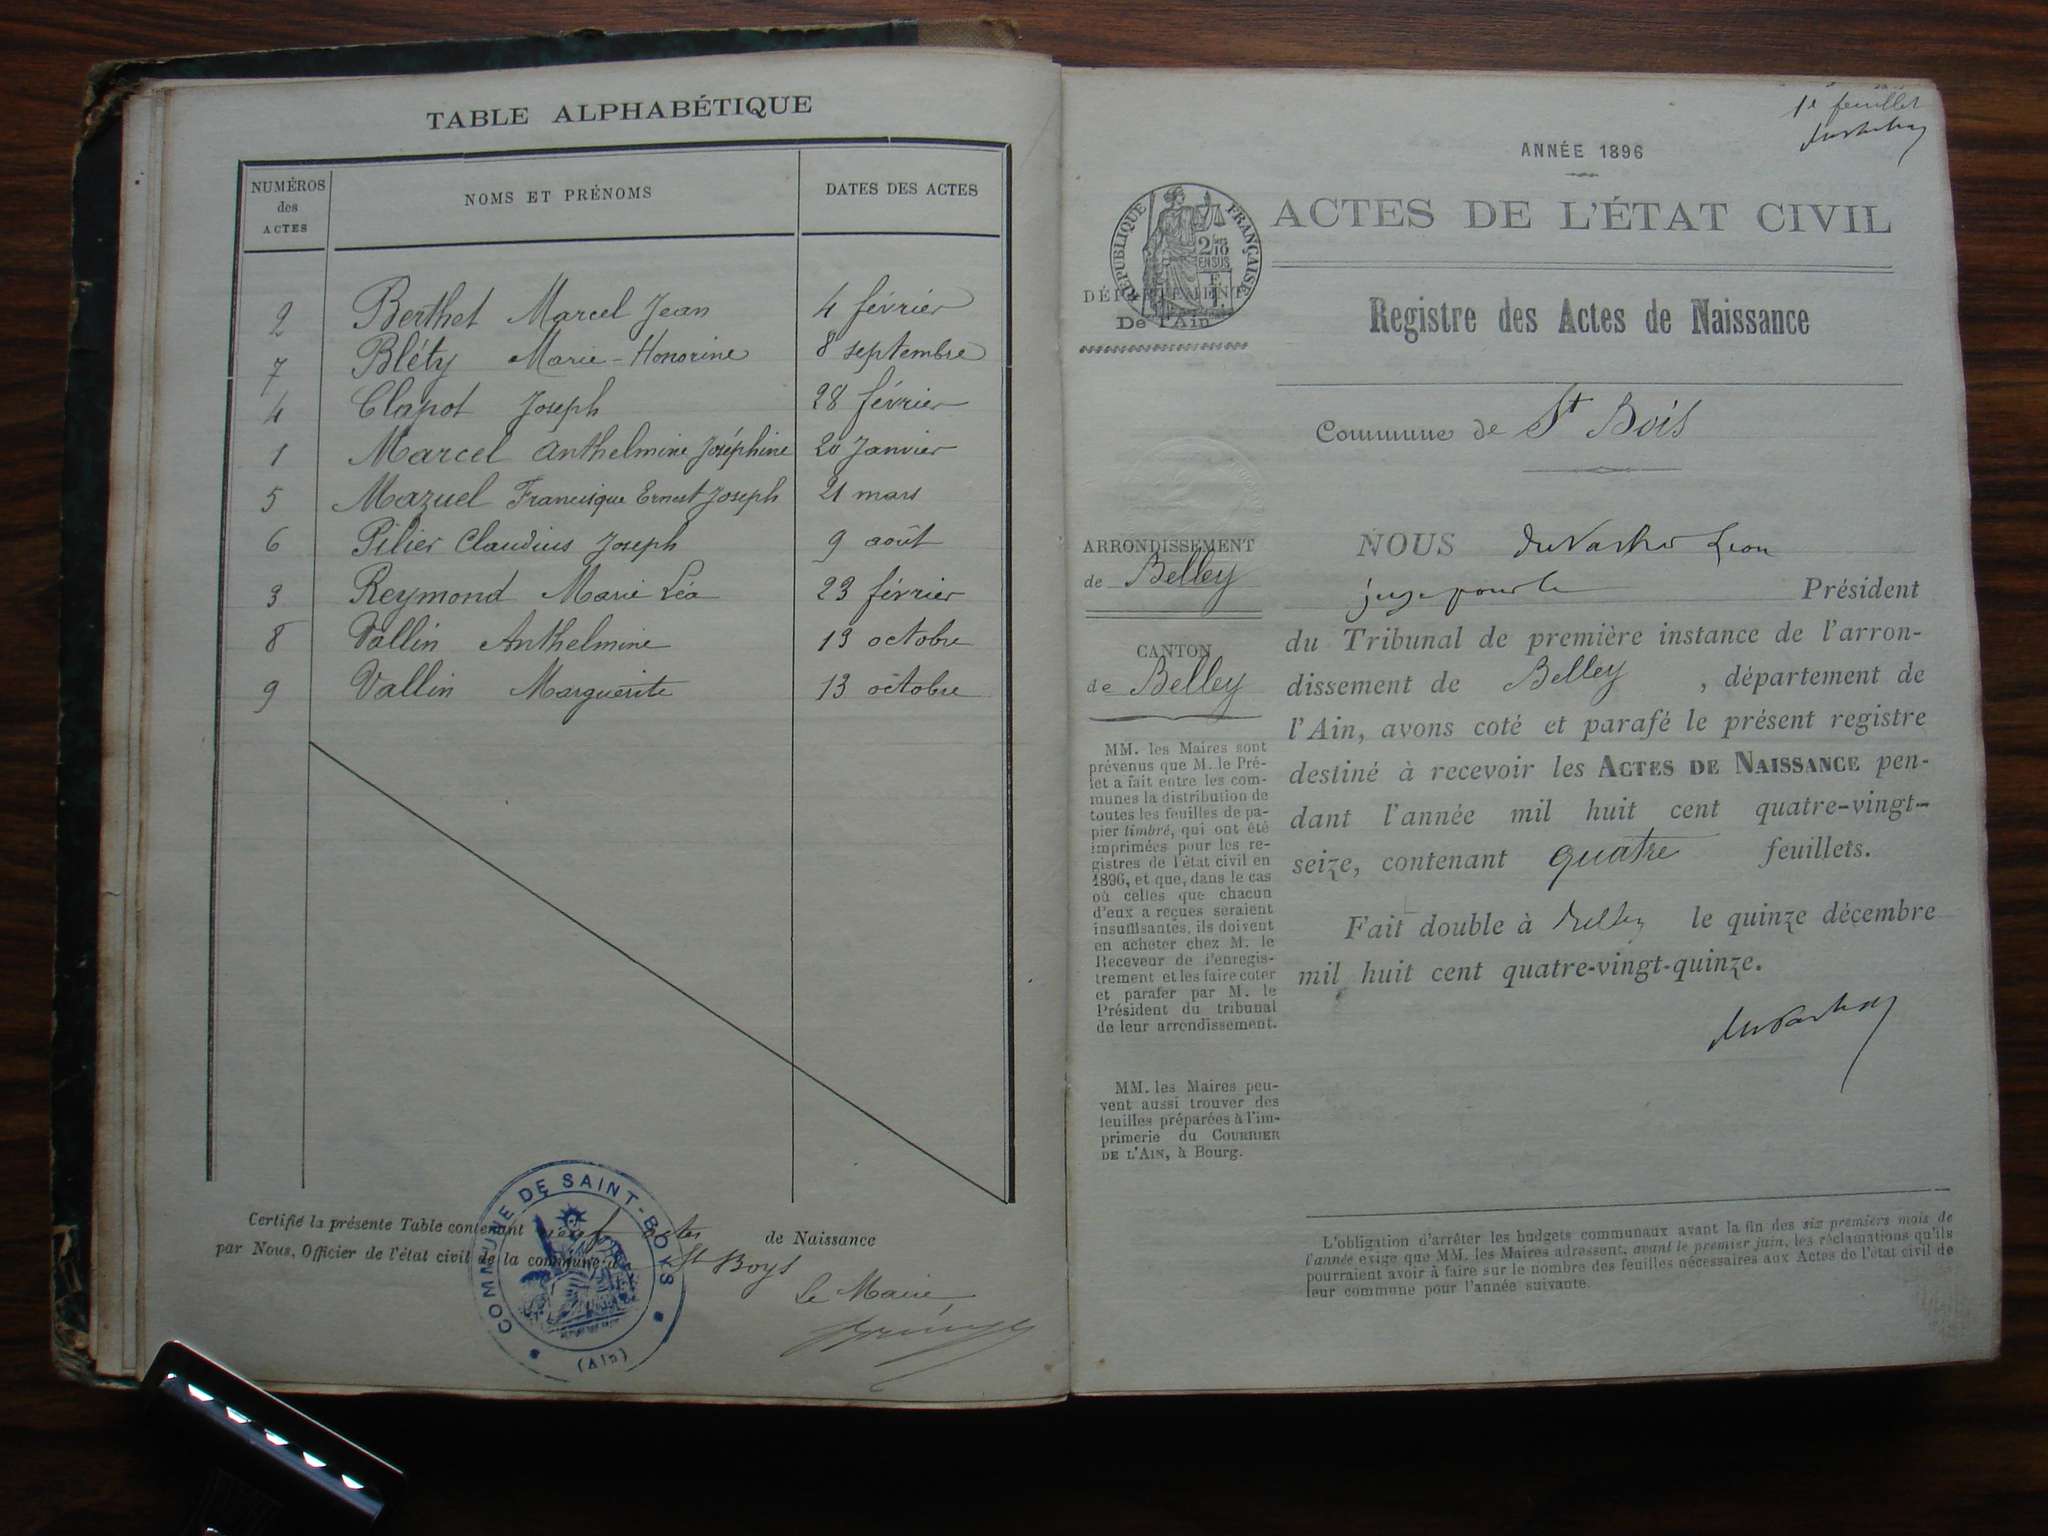 TABLE ALPHABÉTIQUE
NUMÉROS des ACTES
NOMS ET PRÉNOMS
DATES DES ACTES
2 Berthet Marcel Jean 4 février
7 Bléty Marie-Honorine 8 septembre
4 Clapot Joseph 28 février
1 Marcel Anthelmine Joséphine 20 Janvier
5 Mazuel Francisque Ernest Joseph 21 mars
6 Pilier Claudius Joseph 9 août
3 Reymond Marie Léa 23 février
8 Vallin Anthelmine 13 octobre
9 Vallin Marguerite 13 octobre
Certifié la présente Table contenant neuf actes de Naissance
par Nous, Officier de l'état civil de la commune d St Boys
Le Maire
COMMUNE DE SAINT-BOYS
(Ain)
1e feuillet
ANNÉE 1896
ACTES DE L'ÉTAT CIVIL
RÉPUBLIQUE FRANÇAISE
2/10 EN SUS
DÉPARTEMENT
De l'Ain
Registre des Actes de Naissance
Commune de St Bois
ARRONDISSEMENT
de Belley
CANTON
de Belley
MM. les Maires sont
prévenus que M. le Pré-
fet a fait entre les com-
munes la distribution de
toutes les feuilles de pa-
pier timbré, qui ont été
imprimées pour les re-
gistres de l'état civil en
1896, et que, dans le cas
où celles que chacun
d'eux a reçues seraient
insuffisantes, ils doivent
en acheter chez M. le
Receveur de l'enregis-
trement et les faire coter
et parafer par M. le
Président du tribunal
de leur arrondissement.
MM. les Maires peu-
vent aussi trouver des
feuilles préparées à l'im-
primerie du COURRIER
DE L'AIN, à Bourg.
NOUS Léon
juge pour le Président
du Tribunal de première instance de l'arron-
dissement de Belley, département de
l'Ain, avons coté et parafé le présent registre
destiné à recevoir les ACTES DE NAISSANCE pen-
dant l'année mil huit cent quatre-vingt-
seize, contenant quatre feuillets.
Fait double à Belley le quinze décembre
mil huit cent quatre-vingt-quinze.
L'obligation d'arrêter les budgets communaux avant la fin des six premiers mois de
l'année exige que MM. les Maires adressent, avant le premier juin, les réclamations qu'ils
pourraient avoir à faire sur le nombre des feuilles nécessaires aux Actes de l'état civil de
leur commune pour l'année suivante.